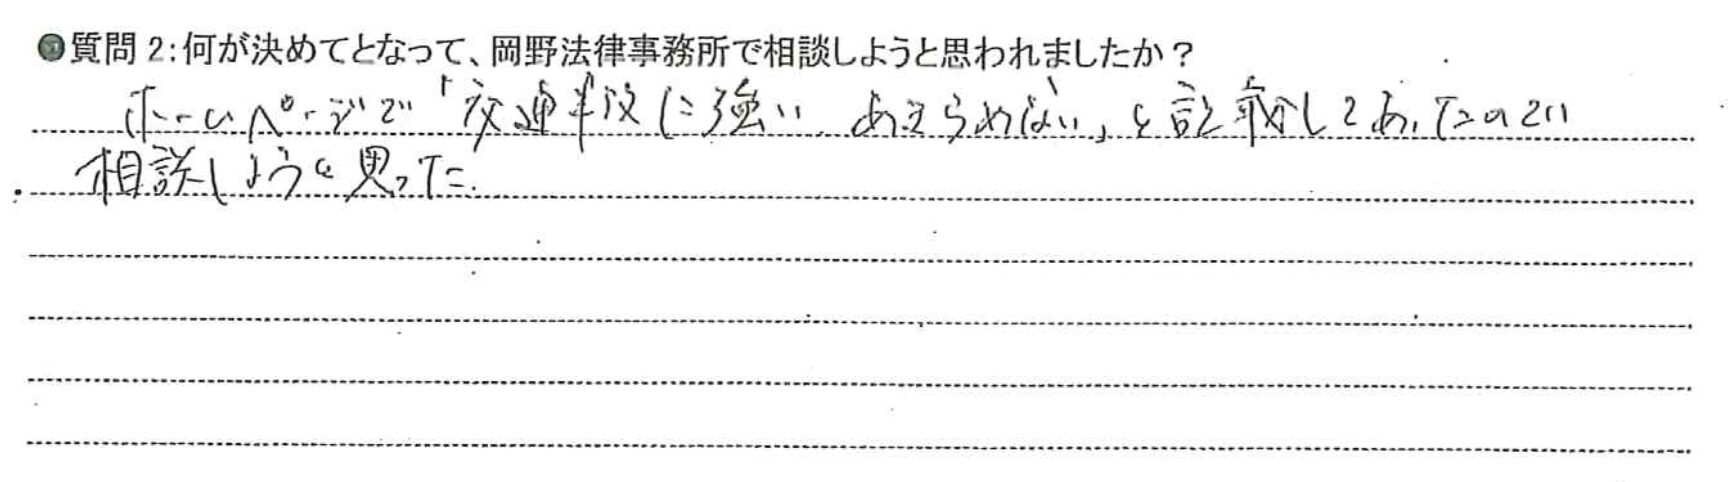 ●質問 2:何が決めてとなって、岡野法律事務所で相談しようと思われましたか？
ホームページで「交通事故に強い、あきらめない」と記載してあったので
相談しようと思った.